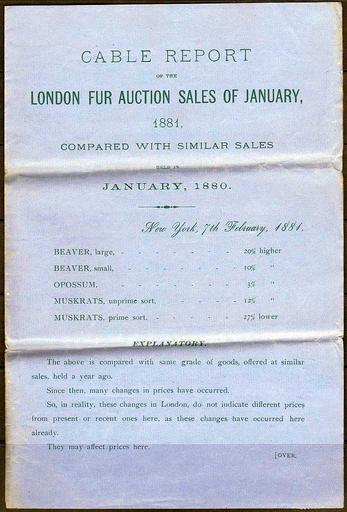 CABLE REPORT
OF THE
LONDON FUR AUCTION SALES OF JANUARY,
1881,
COMPARED WITH SIMILAR SALES
HELD IN
JANUARY, 1880.
New York, 7th February, 1881.
BEAVER, large, - - - - - - - 20% higher
BEAVER, small, - - - - - - - 10% "
OPOSSUM, - - - - - - - 3% "
MUSKRATS, unprime sort, - - - - - 12% "
MUSKRATS, prime sort, - - - - - 27% lower
EXPLANATORY.
The above is compared with same grade of goods, offered at similar
sales, held a year ago.
Since then, many changes in prices have occurred.
So, in reality, these changes in London, do not indicate different prices
from present or recent ones here, as these changes have occurred here
already.
They may affect prices here.
[OVER.